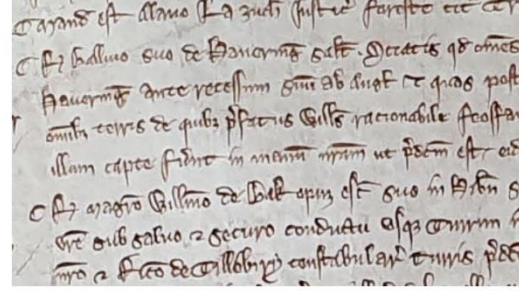 Mand est Alano la Zuch Justic foreste cit Tr
R ballivo suo de Haveringg salt. Sciatis qd omes
Haveringg ante recessum suu ab Angl et quos post
omib terris de quibz pfatus Wills racionabile feoffa
illam capte fuint in manu nram ut pdcm est eid
R magro Willmo de suo in
sub salvo et securo conductu usqz Turrim
nro et Rico de Tillebiry constabular Turris pdc